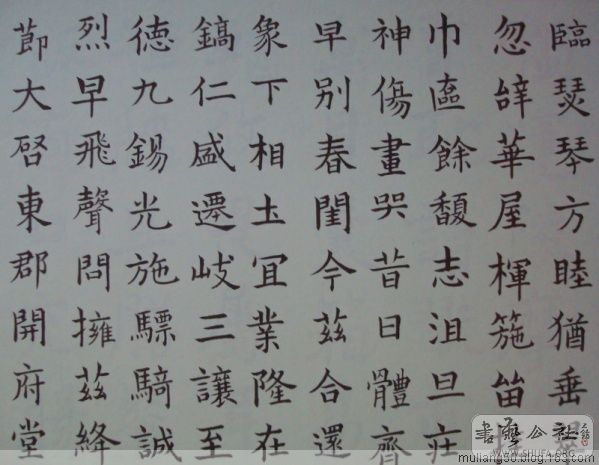 臨瑟琴方睦猶垂
忽辞華屋楎箷
巾餘馥志沮旦莊
神傷畫哭昔日體齊
早別春閨今茲合還
象下相土宜業隆在
鎬仁盛遷岐三讓至
德九錫光施驃騎誠
烈早飛聲問擁茲絳
節大啓東郡開府堂
書藝公社